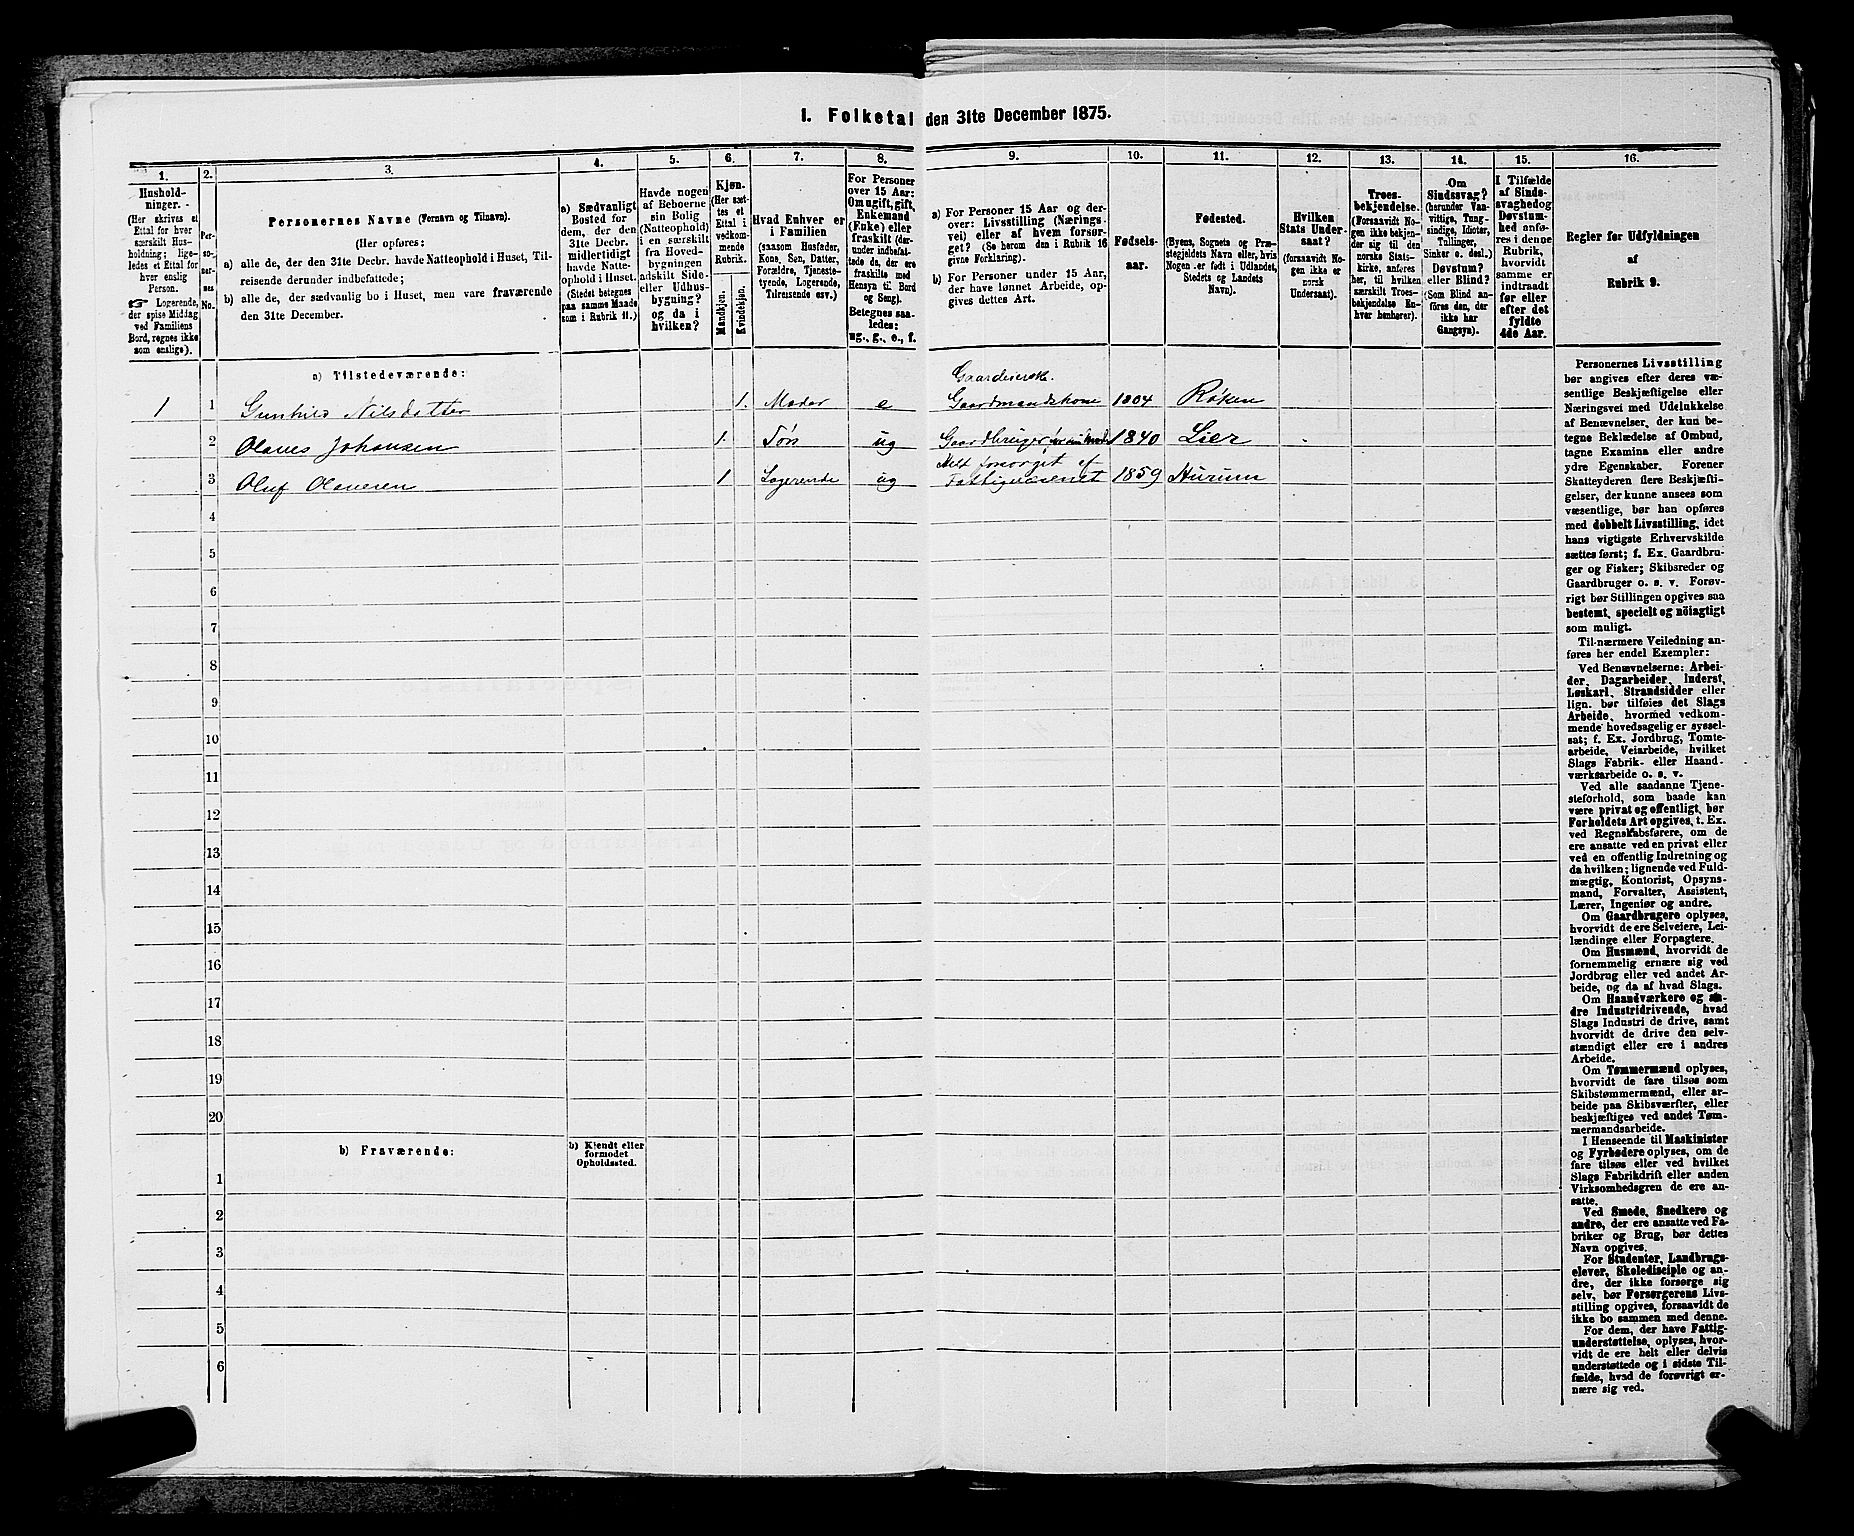 I. Folketal den 31te December 1875.
1.
Hushold-
ninger.
(Her skrives et
Ettal for hver
særskilt Hus-
holdning; lige-
ledes et Ettal for
hver enslig
Person.
☞ Logerende,
der spise Middag
ved Familiens
Bord, regnes ikke
som enslige).
2.
Per-
so-
ner-
nes
No.
3.
Personernes Navne (Fornavn og Tilnavn).
(Her opføres:
a) alle de, der den 31te Decbr. havde Natteophold i Huset, Til-
reisende derunder indbefattede;
b) alle de, der sædvanlig bo i Huset, men vare fraværende
den 31te December.
4.
a) Sædvanligt
Bosted for
dem, der den
31te Decbr.
midlertidigt
havde Natte-
ophold i Huset.
(Stedet betegnes
paa samme Maade
som i Rubrik 11.)
5.
Havde nogen
af Beboerne
sin Bolig
(Natteophold)
i en særskilt
fra Hoved-
bygningen
adskilt Side-
eller Udhus-
bygning?
og da i
hvilken?
6.
Kjøn.
(Her sæt-
tes et
Ettal i
vedkom-
mende
Rubrik.
Mandkjøn.
Kvindekjøn.
7.
Hvad Enhver er
i Familien
(saasom Husfader,
Kone, Søn, Datter,
Forældre, Tjeneste-
tyende, Logerende,
Tilreisende osv.)
8.
For Personer
over 15 Aar:
Om ugift, gift,
Enkemand
(Enke) eller
fraskilt (der-
under indbefat-
tede da, der ere
fraskilte med
Hensyn til Bord
og Seng).
Betegnes saa-
ledes:
ug., g., e., f.
9.
a) For Personer 15 Aar og der-
over: Livsstilling (Nærings-
vei) eller af hvem forsør-
get? (Se herom den i Rubrik 16
givne Forklaring).
b) For Personer under 15 Aar,
der have lønnet Arbeide, op-
gives dettes Art.
10.
Fødsels-
aar.
11.
Fødested.
(Byens, Sognets og Præ-
stegjeldets Navn eller, hvis
Nogen er født i Udlandet,
Stedets og Landets
Navn).
12.
Hvilken
Stats Under-
saat?
(forsaavidt No-
gen ikke er
norsk
Undersaat).
13.
Troes-
bekjendelse.
(Forsaavidt No-
gen ikke bekjen-
der sig til den
norske Stats-
kirke, anføres
her, til hvilken
særskilt Troes-
bekjendelse En-
hver henhører).
14.
Om
Sindssvag?
(herunder Van-
vittige, Tung-
sindige, Idioter,
Tullinger,
Sinker o. desl.)
Døvstum?
eller Blind?
(Som Blind an-
føres den, der
ikke har
Gangsyn).
15.
I Tilfælde
af Sinds-
svaghed og
Døvstum-
hed anfø-
res i denne
Rubrik,
hvorvidt
samme er
indtraadt
før eller
efter det
fyldte
4de Aar.
16.
Regler for Udfyldningen
af
Rubrik 9.
a) Tilstedeværende:
Gaardeierske.
1 1 Gunhild Nilsdatter 1. Moder e Gaardmandskone 1804 Røken
2 Olaves Johansen 1. Søn ug Gaardbruger 1840 Lier
Helt forsørget af
3 Oluf Olavesen 1 Logerende ug Fattigvæsenet 1859 Hurum
4
5
6
7
8
9
10
11
12
13
14
15
16
17
18
19
20
b) Fraværende:
b) Kjendt eller
formodet
Opholdssted.
1
2
3
4
5
6
Personernes Livsstilling
bør angives efter deres væ-
sentlige Beskjæftigelse eller
Næringsvei med Udelukkelse
af Benævnelser, der kun be-
tegne Beklædelse af Ombud,
tagne Examina eller andre
ydre Egenskaber. Forener
Skatteyderen flere Beskjæfti-
gelser, der kunne ansees som
væsentlige, bør han opføres
med dobbelt Livsstilling, idet
hans vigtigste Erhvervskilde
sættes først; f. Ex. Gaardbru-
ger og Fisker; Skibsreder og
Gaardbruger o. s. v. Forøv-
rigt bør Stillingen opgives saa
bestemt, specielt og nöiagtigt
som muligt.
Til nærmere Veiledning an-
føres her endel Exempler:
Ved Benævnelserne: Arbei-
der, Dagarbeider, Inderst,
Løskarl, Strandsidder eller
lign. bør tilføies det Slags
Arbeide, hvormed vedkom-
mende hovedsagelig er syssel-
sat; f. Ex. Jordbrug, Tomte-
arbeide, Veiarbeide, hvilket
Slags Fabrik- eller Haand-
værksarbeide o. s. v.
Ved alle saadanne Tjene-
steforhold, som baade kan
være privat og offentligt, bør
Forholdets Art opgives, t. Ex.
ved Regnskabsførere, om de
ere ansatte ved en privat eller
ved en offentlig Indretning og
da hvilken; lignende ved Fuld-
mægtig, Kontorist, Opsyns-
mand, Forvalter, Assistent,
Lærer, Ingeniør og andre.
Om Gaardbrugere oplyses,
hvorvidt de ere Selveiere, Lei-
lændinge eller Forpagtere.
Om Husmænd, hvorvidt de
fornemmelig ernære sig ved
Jordbrug eller ved andet Ar-
beide, og da af hvad Slags.
Om Haandværkere og an-
dre Industridrivende, hvad
Slags Industri de drive, samt
hvorvidt de drive den selv-
stændigt eller ere i andres
Arbeide.
Om Tømmermænd oplyses,
hvorvidt de fare tilsøs som
Skibstømmermænd, eller ar-
beide paa Skibsværfter, eller
beskjæftiges ved andet Tøm-
mermandsarbeide.
I Henseende til Maskinister
og Fyrbødere oplyses, om de
fare tilsøs eller ved hvilket
Slags Fabrikdrift eller anden
Virksomhedsgren de ere an-
satte.
Ved Smede, Snedkere og
andre, der ere ansatte ved Fa-
briker og Brug, bør dettes
Navn opgives.
For Studenter, Landbrugs-
elever, Skoledisciple og an-
dre, der ikke forsørge sig
selv, bør Forsørgerens Livs-
stilling opgives, forsaavidt de
ikke bo sammen med denne.
For dem, der have Fattig-
understøttelse, oplyses, hvor-
vidt de ere helt eller delvis
understøttede og i sidste Til-
fælde, hvad de forøvrigt er-
nære sig ved.